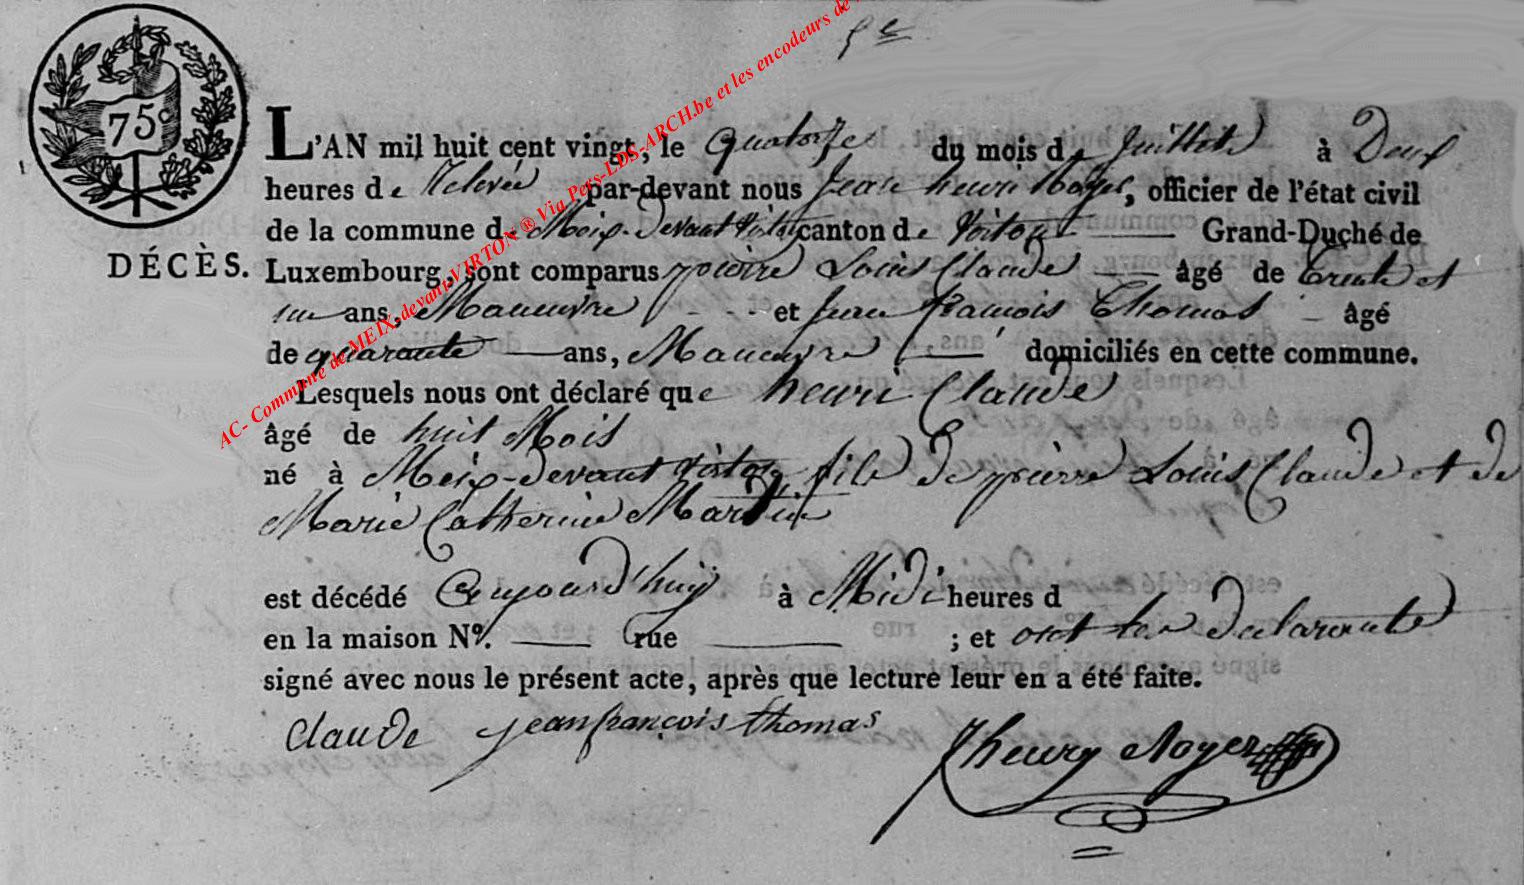 75c
L'AN mil huit cent vingt, le quatorze du mois de juillet à Deux
heures de Relevée par-devant nous Jean henri Noyer, officier de l'état civil
de la commune de Meix-devant Virton canton de Virton Grand-Duché de
DÉCÈS. Luxembourg, sont comparus pierre Louis Claude âgé de trente et
un ans, Maneuvre et jean françois Thomas âgé
de quarante ans, Maneuvre domiciliés en cette commune.
Lesquels nous ont déclaré que henri Claude
âgé de huit Mois
né à Meix-devant virton, fils de pierre Louis Claude et de
Marie Catherine Martin
est décédé aujourd'huy à Midi heures d
en la maison N°. rue ; et ont les déclarants
signé avec nous le présent acte, après que lecture leur en a été faite.
Claude jean françois thomas jhenry Noyer
AC- Commune de MEIX-devant-VIRTON ® Via Pers-LDS-ARCH.be et les encodeurs de